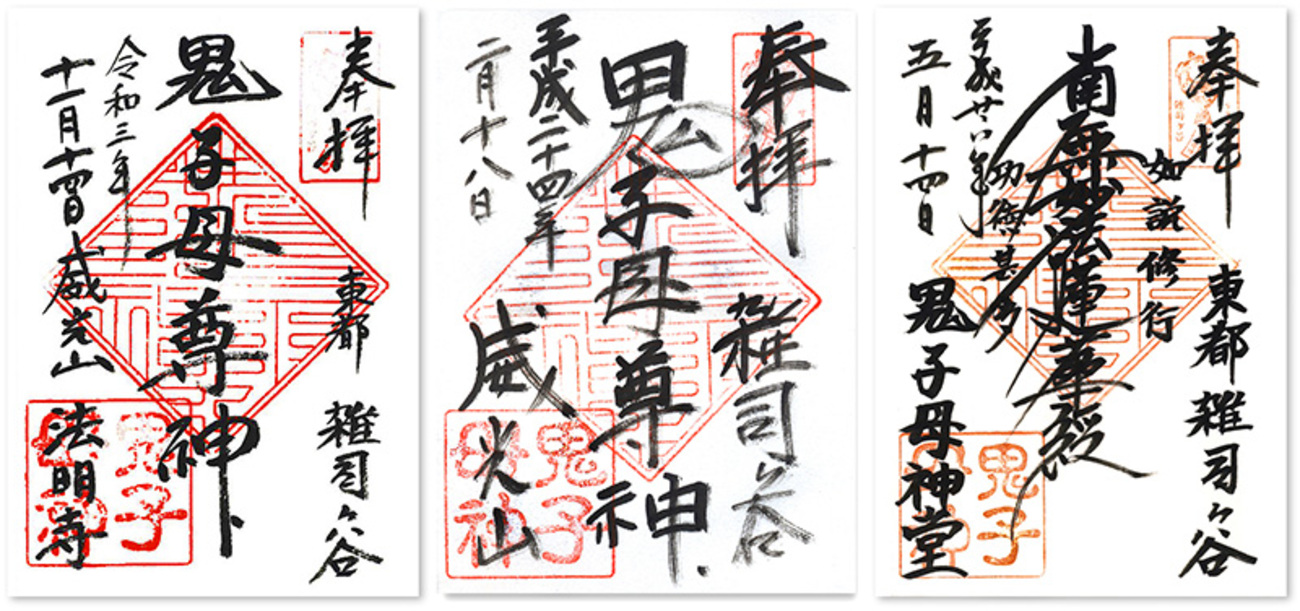 奉拝
東都
雑司ヶ谷
鬼子母尊神
令和三年
十一月十四日
威光山
法明寺
鬼子母神
奉拝
雑司ヶ谷
鬼子母尊神
平成二十四年
二月十八日
威光山
鬼子母神
奉拝
東都雑司ヶ谷
如説修行
南無妙法蓮華経
功徳甚多
五月十四日
鬼子母神堂
鬼子